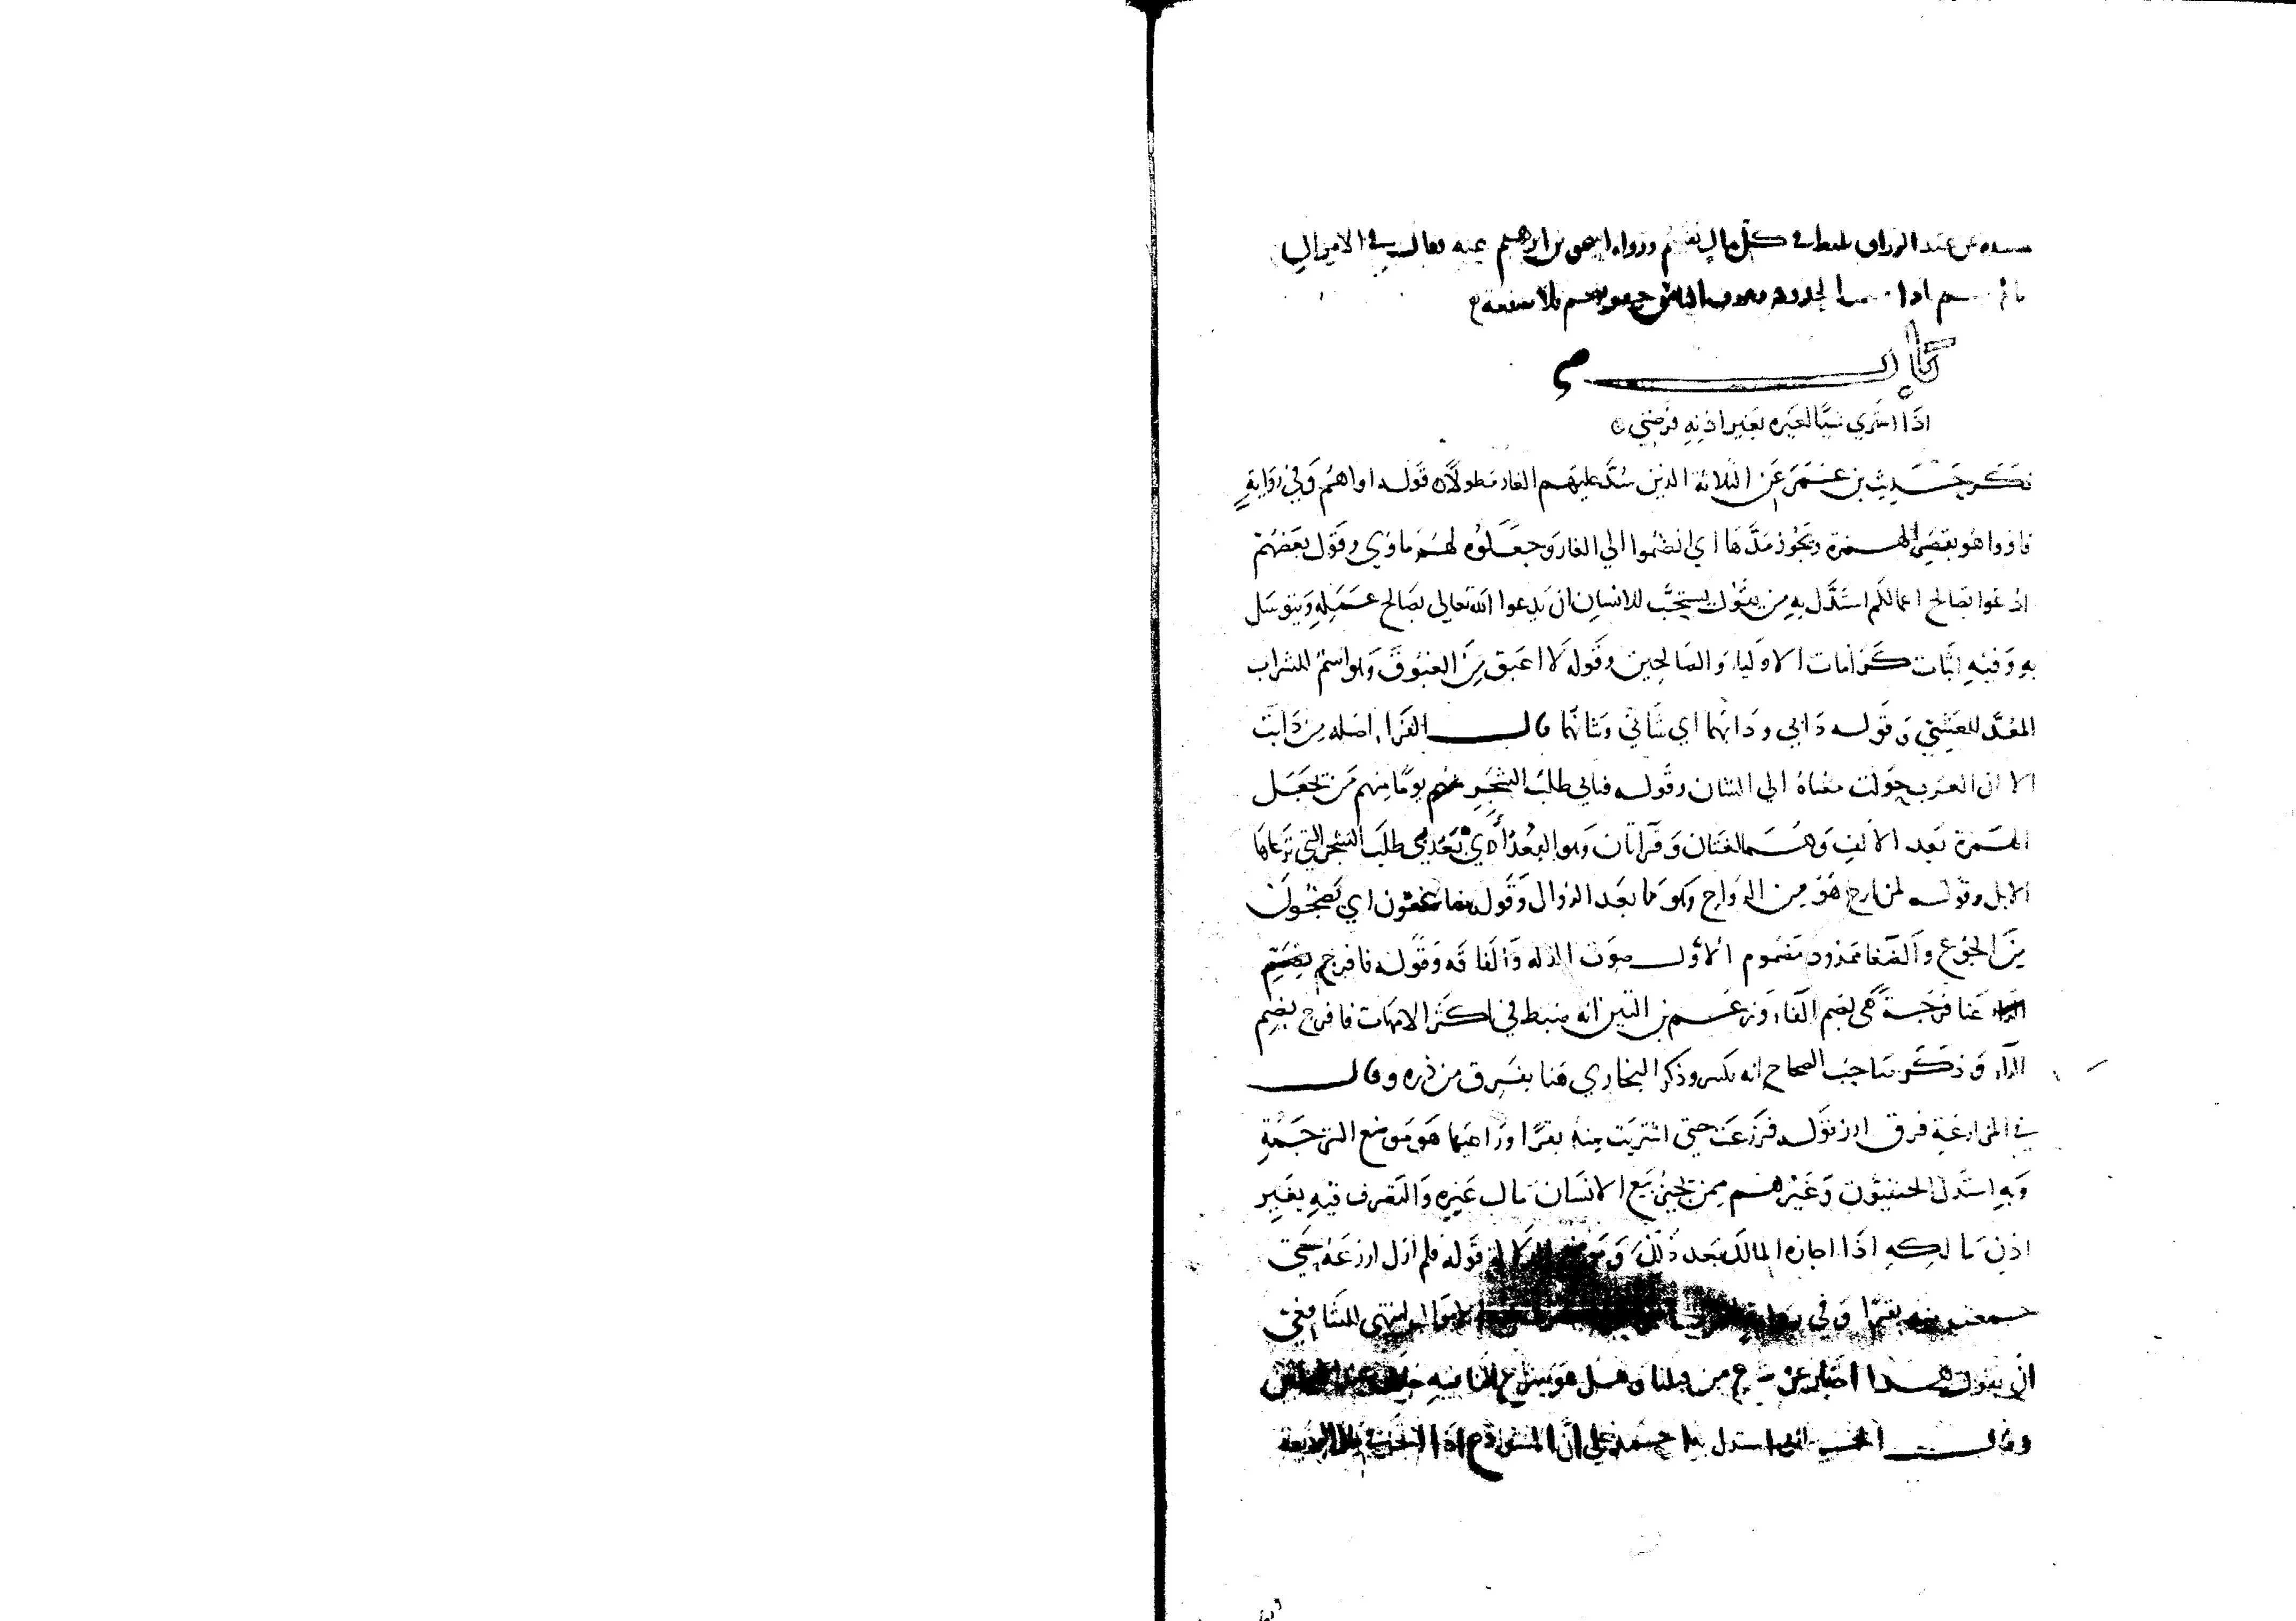 مسنده عن عبد الرزاق بلفظ في كل مال يقسم ورواه اسحق بن ابرهيم عنه فقال في الاموال
ما لم يقسم اذا الحدود
كتاب
اذا اشتري شيًا لغيره بغير اذنه فرضي
ذكر حديث بن عمر عن الثلاثة الذين سُدَّ عليهم الغار مطولًا قوله اواهم وفي رواية
فاووا هو بقصر الهمزة ويجوز مدّها اي انضموا الي الغار وجعلوه لهم ماوي وقول بعضهم
ادعوا بصالح اعمالكم استدل به من يقول يستحب للانسان ان يدعوا الله تعالي بصالح عمله ويتوسل
به وفيه اثبات كرامات الاوليا والصالحين وقوله لا اغبق من الغبوق وهو اسم للشراب
المعدّ للعشي وقوله دابي ودابهما اي شاني وشانهما قال الفرا اصله من دابت
الا ان العرب حولت معناه الي الشان وقوله فنابي طلب الشجر يومًا منهم من يجعل
الهمزة بعد الالف وهما لغتان وقراتان وهو البعد اي بَعُدَ بي طلب الشجر التي ترعاها
الابل وقوله لمن ارح هو من الرواح وهو ما بعد الزوال وقوله يتضاغون اي يضجون
من الجوع والضغا ممدود مضموم الأول صوت الذلة والفاقه وقوله فافرج بضم
الراء عنا فرجة هي بضم الفاء وزعم بن التين انه ضبط في اكثر الامهات فافرج بضم
الراء وذكر صاحب الصحاح انه بكسر وذكر البخاري هنا بفرق من ذره وقال
في المزارعة فرق ارز قوله فزرعت حتي اشتريت منه بقرًا وراعيها هو موضع الترجمة
وبه استدل الحنفيون وغيرهم ممن يجيز بيع الانسان مال غيره والتصرف فيه بغير
اذن مالكه اذا اجازه المالك بعد ذلك وموضع الدلالة قوله فلم ازل ازرعه حتي
جمعت منه بقرًا وفي رواية الاموال انتهي للشافعي
ان يقول هذا اخبار عن شرع من قبلنا وهل هو شرع لنا فيه خلاف
وقال استدل به احمد علي ان المستودع اذا اتجر في مال الوديعة